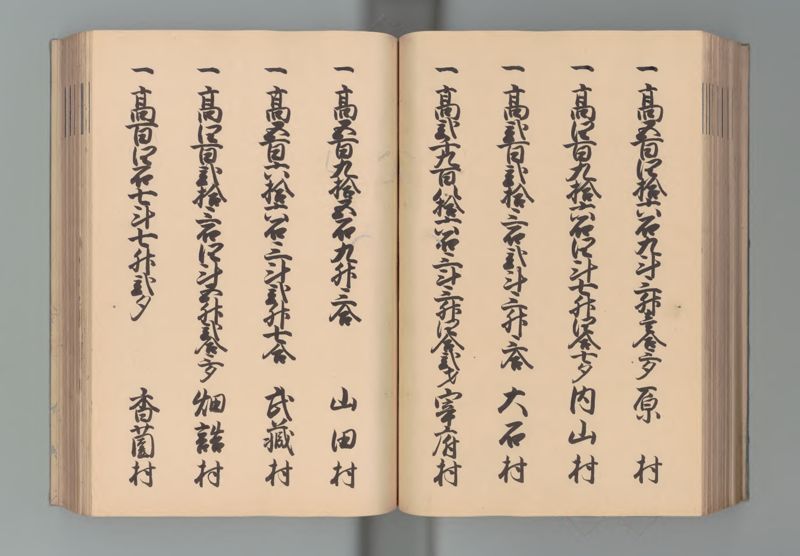 一 高五百四拾六石九斗三升三合三夕 原村
一 高四百九拾六石四斗七升四合七夕 内山村
一 高弐百弐拾三石弐斗三升三合 大石村
一 高弐千九百八拾六石三斗三升四合弐才 宰府村
一 高五百九拾五石九升三合 山田村
一 高五百六拾六石三斗弐升七合 武藏村
一 高四百弐拾三石四斗五升弐合三夕 畑詰村
一 高百四石七斗七升弐夕 香薗村